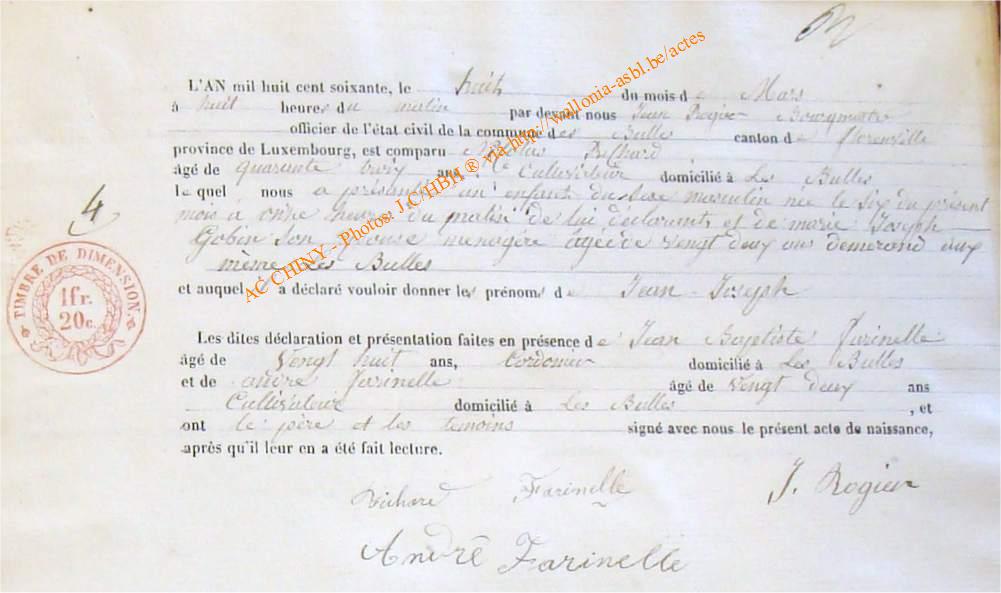 L'AN mil huit cent soixante, le huit du mois de Mars
à huit heures du matin par devant nous Jean Rogier Bourgmestre
officier de l'état civil de la commune des Bulles canton de florenville
province de Luxembourg, est comparu Nicolas Richard
âgé de quarante trois ans Cultivateur domicilié à Les Bulles
le quel nous a présenté un enfant du sexe masculin née le six du présent
mois à onze heures du matin de lui déclarant et de marie Joseph
Gobin son épouse menagére âgée de vengt deux ans demerand aux
même Les Bulles
et auquel a déclaré vouloir donner les prénoms de Jean-Joseph
4
TIMBRE DE DIMENSION.
1fr.
20c.
Les dites déclaration et présentation faites en présence de Jean Baptiste Farinelle
âgé de Vengt huit ans, Cordonnier domicilié à Les Bulles
et de andré Farinelle âgé de vengt deux ans
Cultivateur domicilié à Les Bulles , et
ont le père et les temoins signé avec nous le présent acte de naissance,
après qu'il leur en a été fait lecture.
Richard Farinelle J. Rogier
André Farinelle
AC CHINY - Photos: J.C/HBH ® via http://wallonia-asbl.be/actes